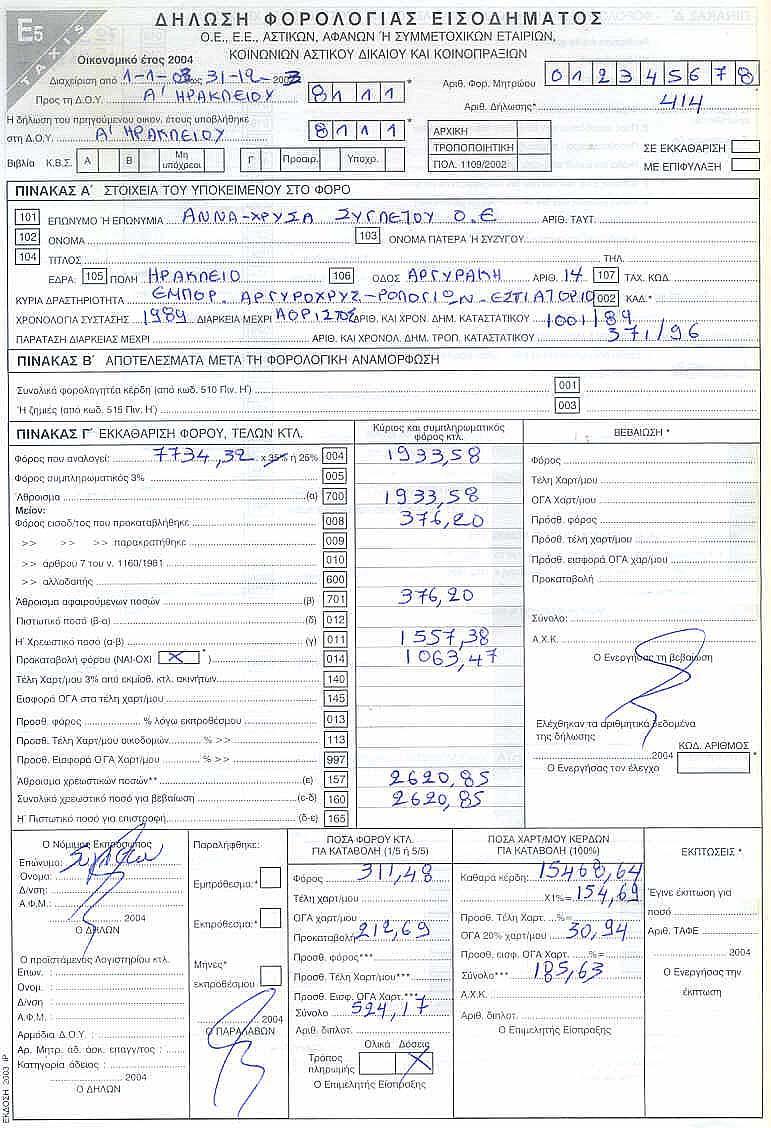 E5
TAXIS
ΔΗΛΩΣΗ ΦΟΡΟΛΟΓΙΑΣ ΕΙΣΟΔΗΜΑΤΟΣ
Ο.Ε., Ε.Ε., ΑΣΤΙΚΩΝ, ΑΦΑΝΩΝ Ή ΣΥΜΜΕΤΟΧΙΚΩΝ ΕΤΑΙΡΙΩΝ,
Οικονομικό έτος 2004 ΚΟΙΝΩΝΙΩΝ ΑΣΤΙΚΟΥ ΔΙΚΑΙΟΥ ΚΑΙ ΚΟΙΝΟΠΡΑΞΙΩΝ
Διαχείριση από 1-1-03 έως 31-12-2003 Αριθ. Φορ. Μητρώου 012345678
Προς τη Δ.Ο.Υ. Α' ΗΡΑΚΛΕΙΟΥ 8111 * Αριθ. Δήλωσης* 414
Η δήλωση του προηγούμενου οικον. έτους υποβλήθηκε
στη Δ.Ο.Υ. Α' ΗΡΑΚΛΕΙΟΥ 8111 *
ΑΡΧΙΚΗ
ΤΡΟΠΟΠΟΙΗΤΙΚΗ ΣΕ ΕΚΚΑΘΑΡΙΣΗ
ΠΟΛ. 1109/2002 ΜΕ ΕΠΙΦΥΛΑΞΗ
Βιβλία Κ.Β.Σ. Α Β Μη υπόχρεοι Γ Προαιρ. Υποχρ.
ΠΙΝΑΚΑΣ Α΄ ΣΤΟΙΧΕΙΑ ΤΟΥ ΥΠΟΚΕΙΜΕΝΟΥ ΣΤΟ ΦΟΡΟ
101 ΕΠΩΝΥΜΟ Ή ΕΠΩΝΥΜΙΑ ΑΝΝΑ-ΧΡΥΣΑ ΣΥΓΛΕΤΟΥ Ο.Ε ΑΡΙΘ. ΤΑΥΤ.
102 ΟΝΟΜΑ 103 ΟΝΟΜΑ ΠΑΤΕΡΑ Ή ΣΥΖΥΓΟΥ
104 ΤΙΤΛΟΣ ΤΗΛ.
ΕΔΡΑ: 105 ΠΟΛΗ ΗΡΑΚΛΕΙΟ 106 ΟΔΟΣ ΑΡΓΥΡΑΚΗ ΑΡΙΘ. 14 107 ΤΑΧ. ΚΩΔ.
ΚΥΡΙΑ ΔΡΑΣΤΗΡΙΟΤΗΤΑ ΕΜΠΟΡ. ΑΡΓΥΡΟΧΡΥΣ-ΡΟΛΟΓΙΩΝ-ΕΣΤΙΑΤΟΡΙΟ 002 ΚΑΔ.*
ΧΡΟΝΟΛΟΓΙΑ ΣΥΣΤΑΣΗΣ 1989 ΔΙΑΡΚΕΙΑ ΜΕΧΡΙ ΑΟΡΙΣΤΟΣ ΑΡΙΘ. ΚΑΙ ΧΡΟΝ. ΔΗΜ. ΚΑΤΑΣΤΑΤΙΚΟΥ 1001/89
ΠΑΡΑΤΑΣΗ ΔΙΑΡΚΕΙΑΣ ΜΕΧΡΙ ΑΡΙΘ. ΚΑΙ ΧΡΟΝΟΛ. ΔΗΜ. ΤΡΟΠ. ΚΑΤΑΣΤΑΤΙΚΟΥ 371/96
ΠΙΝΑΚΑΣ Β΄ ΑΠΟΤΕΛΕΣΜΑΤΑ ΜΕΤΑ ΤΗ ΦΟΡΟΛΟΓΙΚΗ ΑΝΑΜΟΡΦΩΣΗ
Συνολικά φορολογητέα κέρδη (από κωδ. 510 Πιν. Η΄) 001
Ή ζημιές (από κωδ. 515 Πιν. Η΄) 003
ΠΙΝΑΚΑΣ Γ΄ ΕΚΚΑΘΑΡΙΣΗ ΦΟΡΟΥ, ΤΕΛΩΝ ΚΤΛ. Κύριος και συμπληρωματικός φόρος κτλ. ΒΕΒΑΙΩΣΗ *
Φόρος που αναλογεί: 7734,32 x 35% ή 25% 004 1933,58
Φόρος συμπληρωματικός 3% 005
Άθροισμα (α) 700 1933,58
Μείον:
Φόρος εισοδ/τος που προκαταβλήθηκε 008 376,20
>> >> >> παρακρατήθηκε 009
>> άρθρου 7 του ν. 1160/1981 010
>> αλλοδαπής 600
Άθροισμα αφαιρούμενων ποσών (β) 701 376,20
Πιστωτικό ποσό (β-α) (δ) 012
Ή Χρεωστικό ποσό (α-β) (γ) 011 1557,38
Προκαταβολή φόρου (ΝΑΙ-ΟΧΙ X *) 014 1063,47
Τέλη Χαρτ/μου 3% από εκμίσθ. κτλ. ακινήτων 140
Εισφορά ΟΓΑ στα τέλη χαρτ/μου 145
Προσθ. φόρος % λόγω εκπροθέσμου 013
Προσθ. Τέλη Χαρτ/μου οικοδομών % >> 113
Προσθ. Εισφορά ΟΓΑ Χαρτ/μου % >> 997
Άθροισμα χρεωστικών ποσών** (ε) 157 2620,85
Συνολικό χρεωστικό ποσό για βεβαίωση (ε-δ) 160 2620,85
Ή Πιστωτικό ποσό για επιστροφή (δ-ε) 165
Φόρος
Τέλη Χαρτ/μου
ΟΓΑ Χαρτ/μου
Πρόσθ. φόρος
Πρόσθ. τέλη χαρτ/μου
Πρόσθ. εισφορά ΟΓΑ χαρ/μου
Προκαταβολή
Σύνολο:
Α.Χ.Κ.
Ο Ενεργήσας τη βεβαίωση
Ελέχθηκαν τα αριθμητικά δεδομένα
της δήλωσης
2004 ΚΩΔ. ΑΡΙΘΜΟΣ
Ο Ενεργήσας τον έλεγχο *
Ο Νόμιμος Εκπρόσωπος
Επώνυμο:
Ονομα:
Δ/νση:
Α.Φ.Μ.:
2004
Ο ΔΗΛΩΝ
Ο προϊστάμενος Λογιστηρίου κτλ.
Επων. :
Ονομ. :
Δ/νση :
Α.Φ.Μ. :
Αρμόδια Δ.Ο.Υ. :
Αρ. Μητρ. άδ. άσκ. επαγγ/τος :
Κατηγορία άδειος :
2004
Ο ΔΗΛΩΝ
Παραλήφθηκε:
Εμπρόθεσμα:*
Εκπρόθεσμα:*
Μήνες*
εκπροθέσμου
2004
Ο ΠΑΡΑΛΑΒΩΝ
ΠΟΣΑ ΦΟΡΟΥ ΚΤΛ.
ΓΙΑ ΚΑΤΑΒΟΛΗ (1/5 ή 5/5)
Φόρος 311,48
Τέλη χαρτ/μου
ΟΓΑ χαρτ/μου
Προκαταβολή 212,69
Προσθ. φόρος***
Προσθ. Τέλη Χαρτ/μου***
Προσθ. Εισφ. ΟΓΑ Χαρτ.***
Σύνολο 524,17
Αριθ. διπλοτ.
Ολικά Δόσεις
Τρόπος πληρωμής X
Ο Επιμελητής Είσπραξης
ΠΟΣΑ ΧΑΡΤ/ΜΟΥ ΚΕΡΔΩΝ
ΓΙΑ ΚΑΤΑΒΟΛΗ (100%)
Καθαρά κέρδη: 15468,64
X1%= 154,69
Προσθ. Τέλη Χαρτ. %=
ΟΓΑ 20% χαρτ/μου 30,94
Προσθ. εισφ. ΟΓΑ Χαρτ. %=
Σύνολο*** 185,63
Α.Χ.Κ.
Αριθμ. διπλοτ.
Ο Επιμελητής Είσπραξης
ΕΚΠΤΩΣΕΙΣ *
Έγινε έκπτωση για
ποσό
Αριθ. ΤΑΦΕ
2004
Ο Ενεργήσας την
έκπτωση
ΕΚΔΟΣΗ 2003 IP